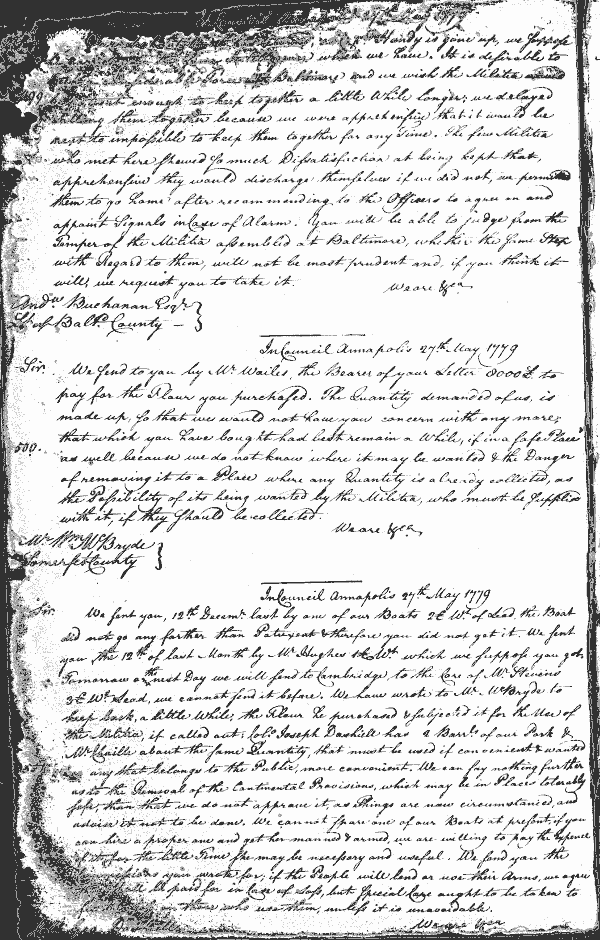 27th May 1779
Handy is gone up, we suppose
which we have. It is desirable to
Baltimore and we wish the Militia
enough to keep together a little While longer; we delayed
calling them together because we were apprehensive that it would be
next to impossible to keep them together for any Time. The few Militia
who met here shewed so much Dissatisfaction at being kept that,
apprehensive they would discharge themselves if we did not, we permitted
them to go home after recommending to the Officers to agree on and
appoint Signals in Case of Alarm. You will be able to judge from the
Temper of the Militia assembled at Baltimore, whether the same Step
with Regard to them, will not be most prudent and, if you think it
will, we request you to take it.
We are &ca
Andw Buchanan Esqr
Lt of Balto County —
In Council Annapolis 27th May 1779
Sir. We send to you by Mr. Wailes, the Bearer of your Letter 8000£ to
pay for the Flour you purchased. The Quantity demanded of us, is
made up, so that we would not have you concern with any more;
that which you have bought had best remain a While, if in a safe Place
500. as well because we do not know where it may be wanted & the Danger
of removing it to a Place where any Quantity is already collected, as
the Possibility of its being wanted by the Militia, who must be supplied
with it, if they should be collected.
We are &ca
Mr. Wm McBryde
Somerset County
In Council Annapolis 27th May 1779
Sir. We sent you, 12th Decemr last by one of our Boats 2 Ct Wt of Lead, the Boat
did not go any farther than Patuxent & therefore you did not get it. We sent
you the 12th of last Month by Mr Hughes 1 Ct Wt which we suppose you got.
Tomorrow or the next Day we will send to Cambridge, to the Care of Mr. Stevens
3 Ct Wt Lead, we cannot send it before. We have wrote to Mr. McBryde to
keep back, a little While, the Flour he purchased & subjected it for the Use of
the Militia, if called out; Colo Joseph Dashiell has 2 Barrs of our Pork &
Mr. Chaille about the same Quantity, that must be used if convenient & wanted
any that belongs to the Public, more convenient. We can say nothing further
as to the Removal of the Continental Provisions, which may be in Places tolerably
safe, than that we do not approve it, as Things are now circumstanced, and
advise it not to be done. We cannot spare one of our Boats at present, if you
can hire a proper one and get her manned & armed, we are willing to pay the Expence
of it, for the little Time she may be necessary and useful. We send you the
you wrote for; if the People will lend or use their Arms, we agree
shall be paid for in Case of Loss, but special Care ought to be taken to
those who use them, unless it is unavoidable.
We are &ca